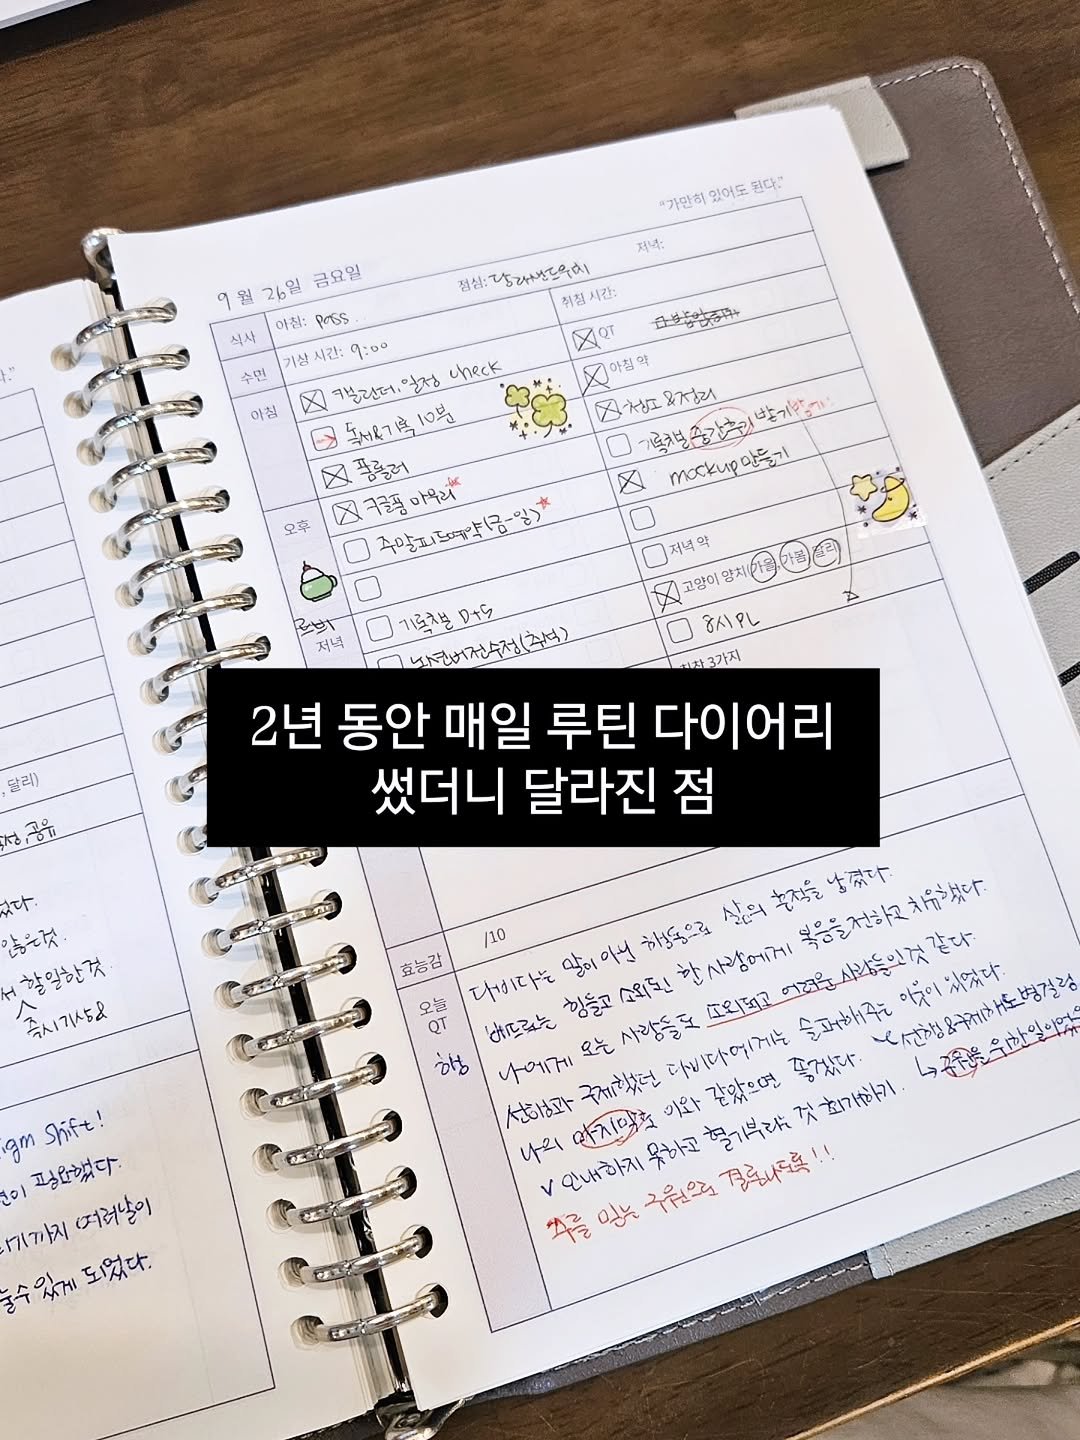 "가만히 있어도 된다."
9 월 26일 금요일
식사 아침: pass. 점심: 달래샌드위치 저녁:
수면 기상 시간: 9:00 취침 시간:
아침 캘린더, 일정 check QT
독서&기록 10분 아침 약
폼롤러 청소&정리
구글폼 마무리 기록챌 중간후기 받기
오후 주말피드예약(금-일) mockup 만들기
저녁 기록챌 D+5 저녁 약
고양이 양치(가을, 가봄, 달리)
8시 PL
칭찬 3가지
2년 동안 매일 루틴 다이어리
썼더니 달라진 점
효능감 /10
오늘 QT
다비다는 말이 아닌 행동으로 삶의 흔적을 남겼다.
베드로는 힘들고 소외된 한 사람에게 복음을 전하고 치유했다.
나에게 오는 사람들도 소외되고 어려운 사람들인것 같다.
선행과 구제했던 다비다에게는 슬퍼해주는 이웃이 있었다.
나의 마지막도 이와 같았으면 좋겠다.
선행&구제하다 병걸림
구원을 위한 일이었음
v 인내하지 못하고 혈기부리는 것 회개하기.
주를 믿는 구원으로 결론나도록!!
, 달리)
, 공유
었다.
않은것.
서 할일한것
즉시기상&
igm Shift!
변이 필요했다.
기까지 여러날이
눌수 있게 되었다.